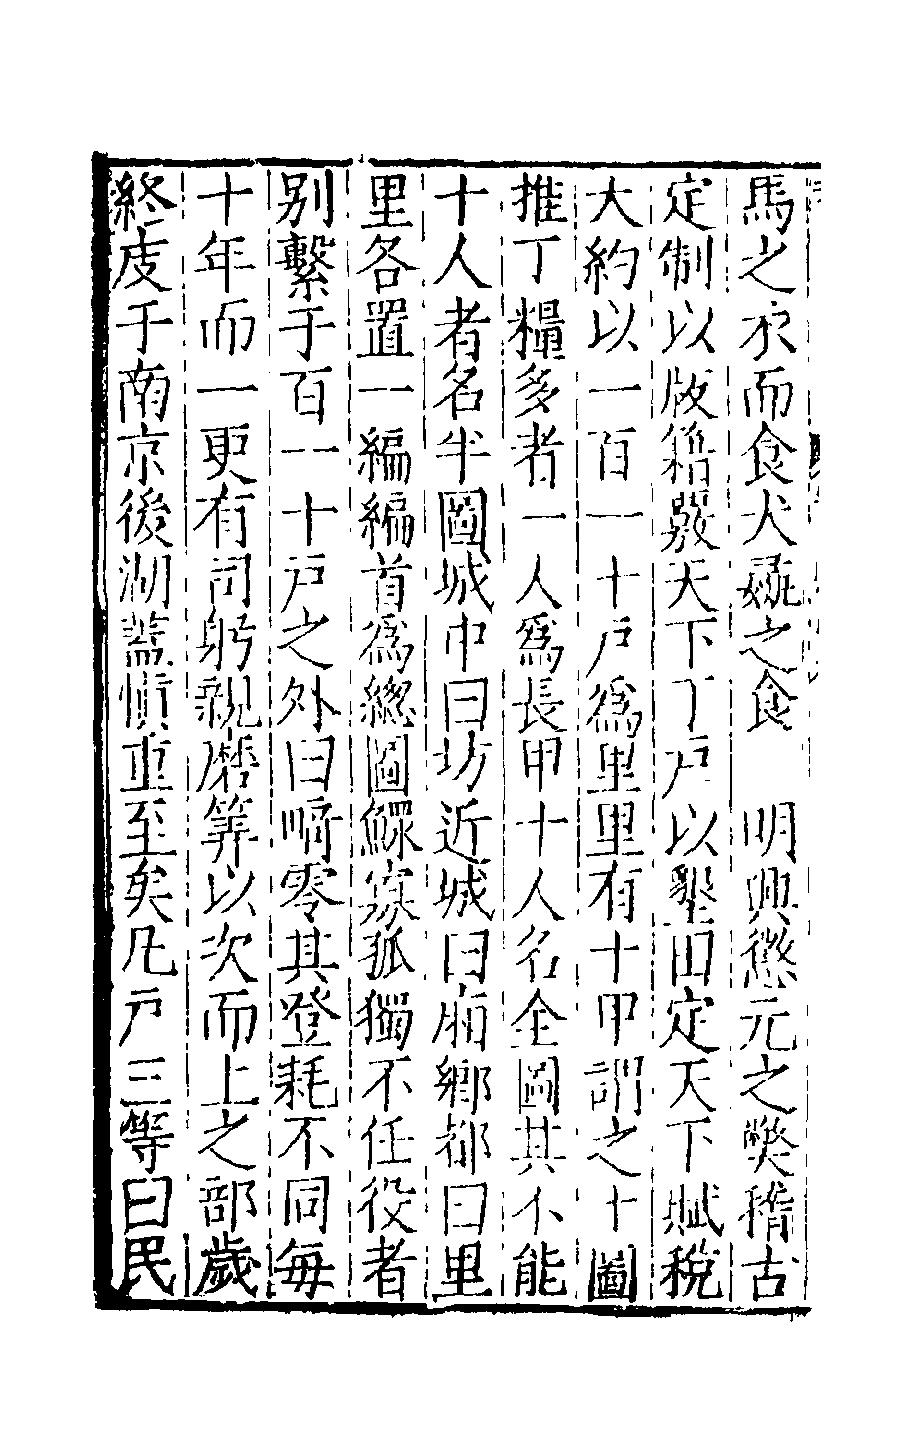 馬之衣而食犬彘之食　明興懲元之弊稽古
定制以版籍覈天下丁戶以墾田定天下賦稅
大約以一百一十戶爲里里有十甲謂之十圖
推丁糧多者一人爲長甲十人名全圖其不能
十人者名半圖城中曰坊近城曰廂鄉都曰里
里各置一編編首爲總圖鰥寡孤獨不任役者
別繫于百一十戶之外曰畸零其登耗不同每
十年而一更有司躬親磨筭以次而上之部歲
終庋于南京後湖蓋愼重至矣凡戶三等曰民